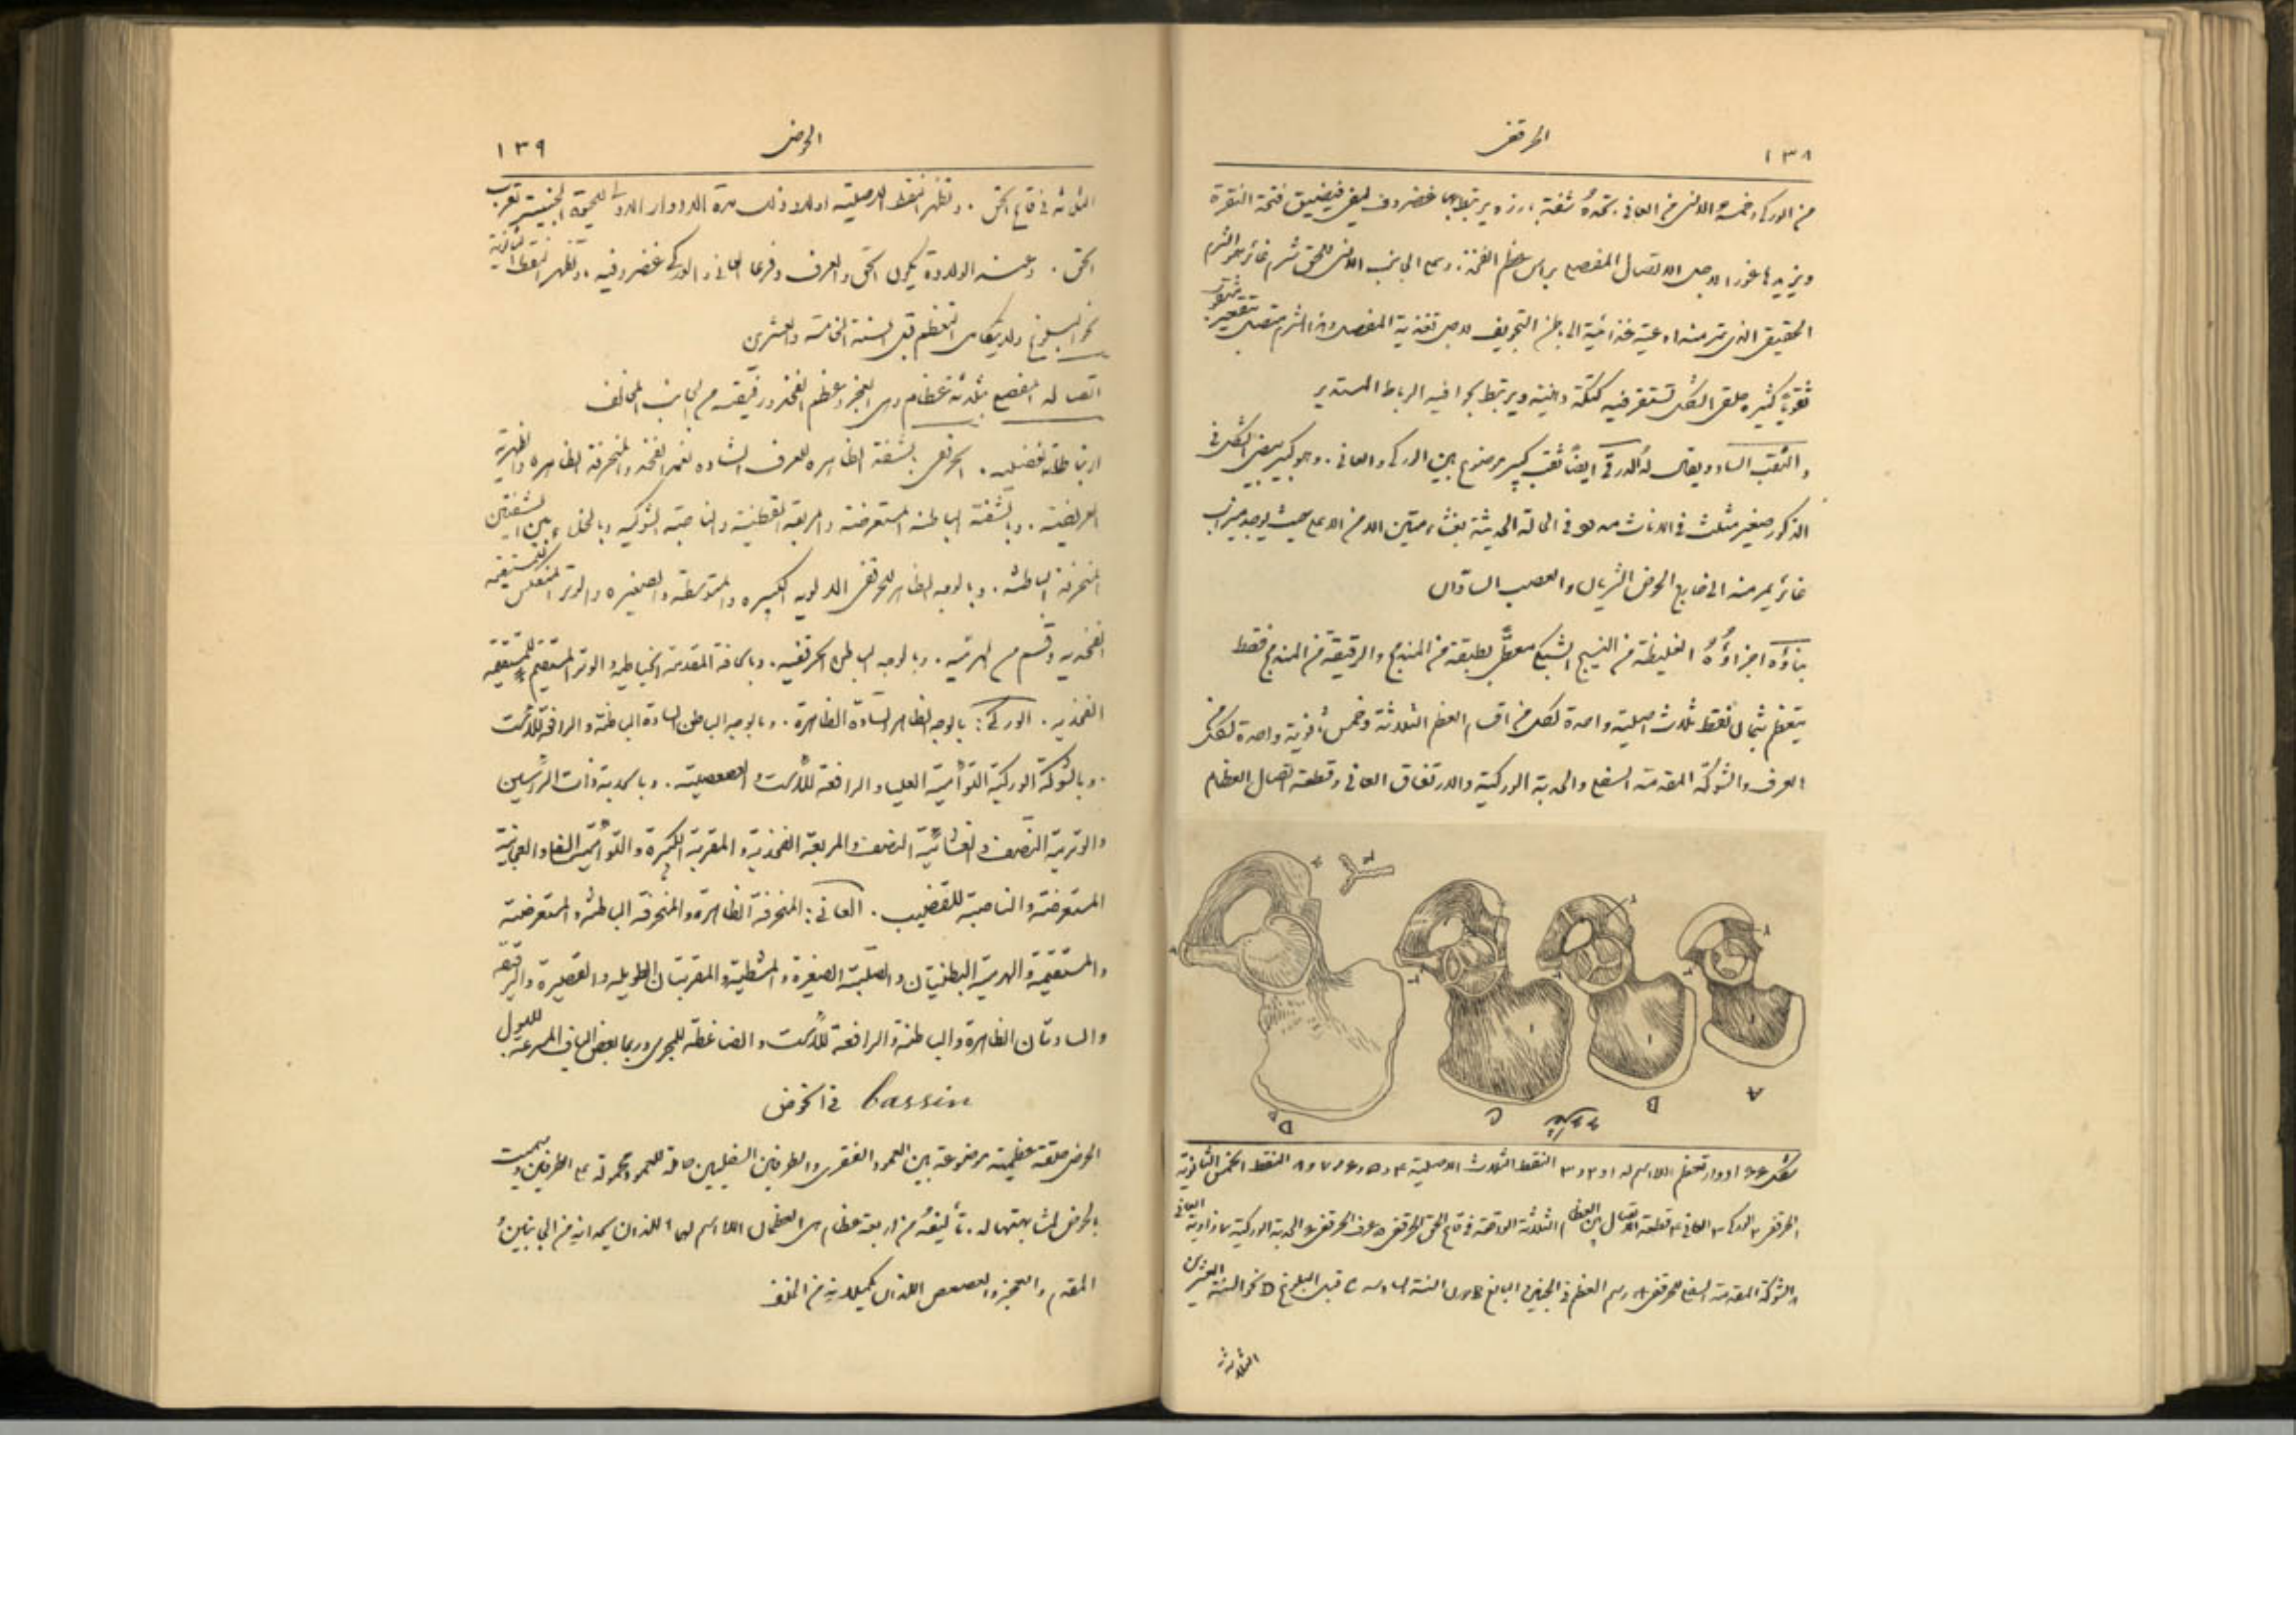 ١٣٨
الحرقفى
من الوركى وخمسهُ الادنى من العانى. تحدهُ شفة بارزة يرتبط بها غضروف ليفى فيضيق فتحة النقرة
ويزيدها غورا لاجل الاتصال المفصلى براس عظم الفخذ. وعلى الجانب الادنى للحق شرم غائر هو الشرم
الحقيقى الذى تمر منه اوعية غذائية الى باطن التجويف لاجل تغذية المفصل وهذا الشرم متصل بتقعير
ثقوباً كثيرة حلقى الشكل تستقر فيه كتلة دهنية ويرتبط بحوافيه الرباط المستدير
والثقب الساد ويقال لهُ الدرقى ايضاً ثقب كبير موضوع بين الوركى والعانى. وهو كبير بيضى الشكل فى
الذكور صغير مثلث فى الاناث مسدود فى الحالة الحديثة بغشاء متين الا من الاعلى حيث يوجد ميزاب
غائر يمر منه الى خارج الحوض الشريان والعصب السادّان
بناؤه اجزاؤُهُ الغليظة من النسيج الشبكى مغطى بطبقة من المندمج والرقيقة من المندمج فقط
يتعظم بثمانى نقط ثلاث اصلية واحدة لكل من اقسام العظم الثلاثة وخمس ثانوية واحدة لكل من
العرف والشوكة المقدمة السفلى والحدبة الوركية والارتفاق العانى وقطعة اتصال العظام
A
B
C
D
شكل ٦٦ ادوار تعظم اللااسم له ١ و٢ و٣ النقط الثلاث الاصلية ٤ و٥ و٦ و٧ و٨ النقط الخمس الثانوية
١ الحرقفى ٢ الوركى ٣ العانى ٤ قطعة الاتصال بين العظام الثلاثة الواقعة فى قاع الحق الحرقفى ٥ عرف الحرقفى ٦ الحدبة الوركية ٧ زاوية العانى
٨ الشوكة المقدمة السفلى للحرقفى A رسم العظم فى الجنين البالغ B فى السنة السادسة C قبل البلوغ D نحو السنة العشرين
الثلاثة
الحوض
١٣٩
الثلاثة فى قاع الحق. وتظهر النقط الاصلية اولا وذلك مدة الادوار الاولى للحيوة الجنينية بقرب
الحق. وعند الولادة يكون الحق والعرف وفرعا العانى والوركى غضروفية. وتظهر النقط الثانوية
نحو البلوغ ولا يتكامل التعظم قبل السنة الخامسة والعشرين
اتصاله المفصلى بثلاثة عظام وهى العجز وعظم الفخذ ورفيقه من الجانب المخالف
ارتباطاته العضلية. الحرقفى: بالشفة الظاهرة للعرف الشادة لغمد الفخذ والمنحرفة الظاهرة والظهرية
العريضة. وبالشفة الباطنة المستعرضة والمربعة القطنية والناصبة الشوكية وبالخلاء بين الشفتين
المنحرفة الباطنة. وبالوجه الظاهر للحرقفى الالوية الكبيرة والمتوسطة والصغيرة والوتر المنعكس للمستقيمة
الفخذية وقسم من الهرمية. وبالوجه الباطن الحرقفية. وبالحافة المقدمة الخياطية والوتر المستقيم للمستقيمة
الفخذية. الوركى: بالوجه الظاهر السادّة الظاهرة. وبالوجه الباطن السادة الباطنة والرافعة للاست
. وبالشوكة الوركية التوأمية العليا والرافعة للاست والعصعصية. وبالحدبة ذات الراسين
والوترية النصف والغشائية النصف والمربعة الفخذية والمقربة الكبيرة والتوأمية السفلى والعجانية
المستعرضة والناصبة للقضيب. العانى: المنحرفة الظاهرة والمنحرفة الباطنة والمستعرضة
والمستقيمة والهرمية البطنيتان والصلبية الصغيرة والمشطية والمقربتان الطويلة والقصيرة والرقيقة
والسادتان الظاهرة والباطنة والرافعة للاست والضاغطة للمجرى وربما بعض الياف المسرعة للبول
فى الحوض bassin
الحوض حلقة عظمية موضوعة بين العمود الفقرى والطرفين السفليين حاملة للعمود ومحمولة على الطرفين وسميت
بالحوض لمشابهتها له. تأليفهُ من اربعة عظام هى العظمان اللا اسم لهما اللذان يحدانه من الجانبين و
المقدم والعجز والعصعص اللذان يكملانه من الخلف